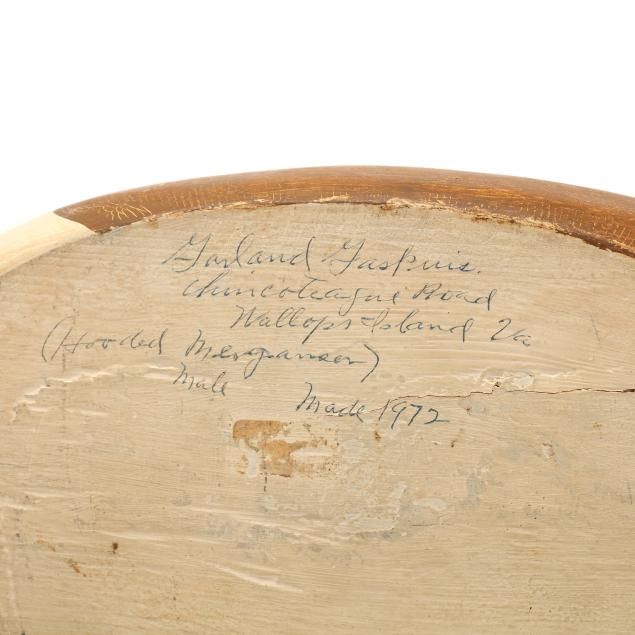 Garland Gaskins.
Chincoteague Road
Wallops Island Va
(Hooded Merganser)
Male Made 1972